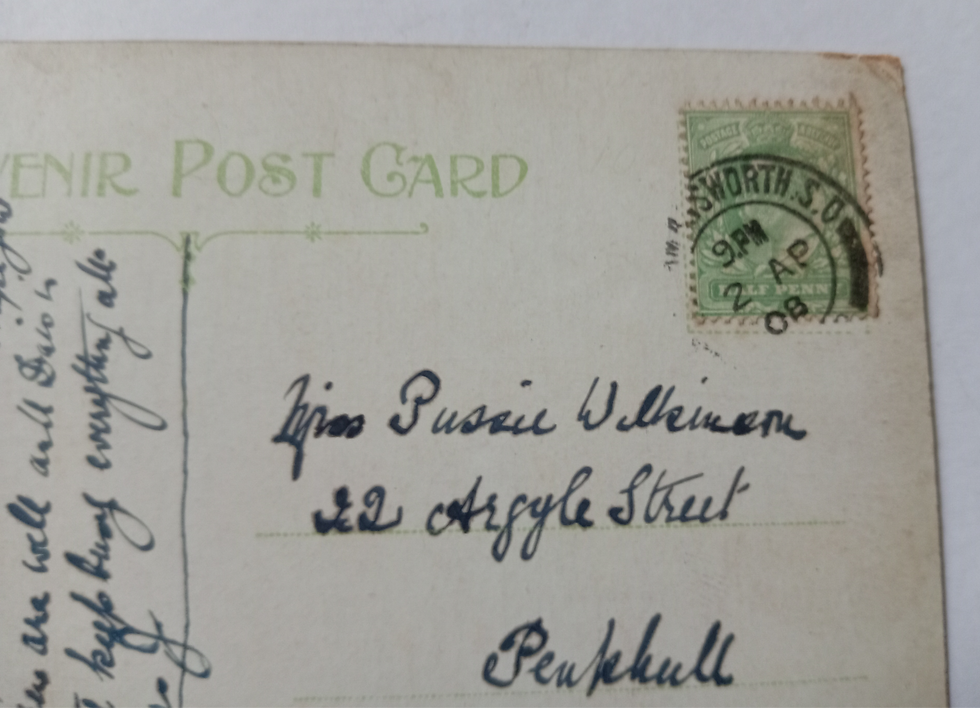 VENIR POST CARD
POSTAGE
SWORTH.S.O
9.PM
2 AP
08
HALF PENNY
Miss Pussie Wilkinson
22 Argyle Street
Penkhull
are well and
keep busy everything all